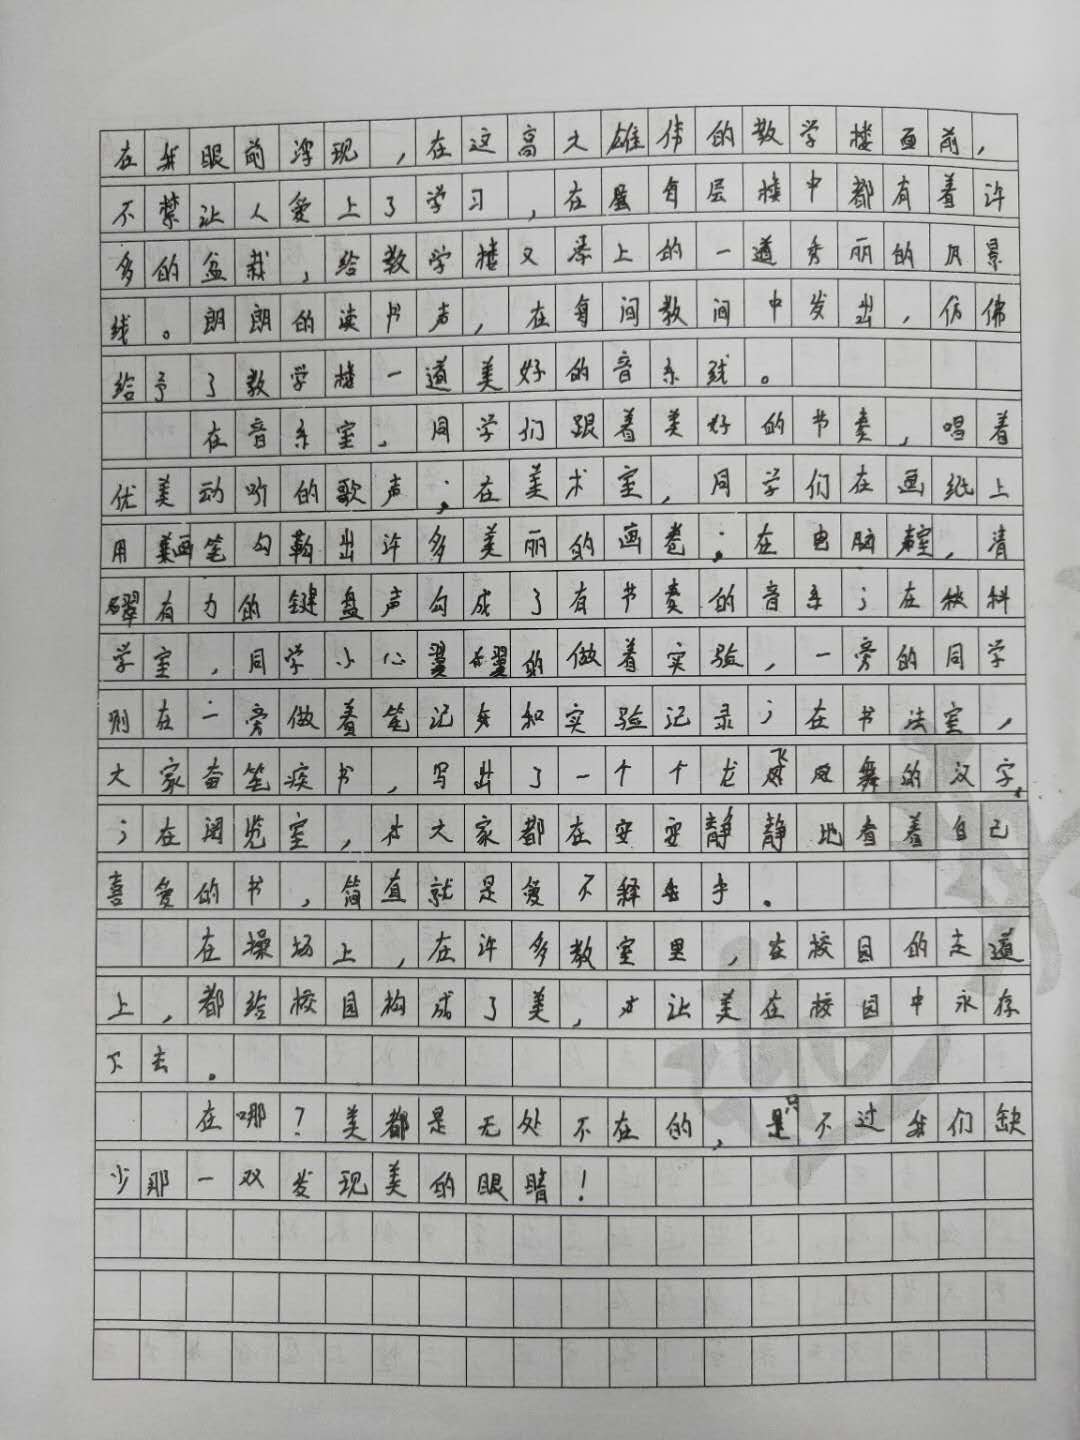 在我眼前浮现，在这高大雄伟的教学楼面前，
不禁让人爱上了学习，在每层楼中都有着许
多的盆栽，给教学楼又添上的一道秀丽的风景
线。朗朗的读书声，在每间教间中发出，仿佛
给予了教学楼一道美好的音乐线。
在音乐室，同学们跟着美好的节奏，唱着
优美动听的歌声；在美术室，同学们在画纸上
用画笔勾勒出许多美丽的画卷；在电脑室，清
有力的键盘声勾成了有节奏的音乐；在科
学室，同学小心翼翼的做着实验，一旁的同学
则在一旁做着笔记和实验记录；在书法室，
大家奋笔疾书，写出了一个个龙飞凤舞的汉字
；在阅览室，大家都在安安静静地看着自己
喜爱的书，简直就是爱不释手。
在操场上，在许多教室里，在校园的走道
上，都给校园构成了美，才让美在校园中永存
下去。
在哪？美都是无处不在的，只不过我们缺
少那一双发现美的眼睛！